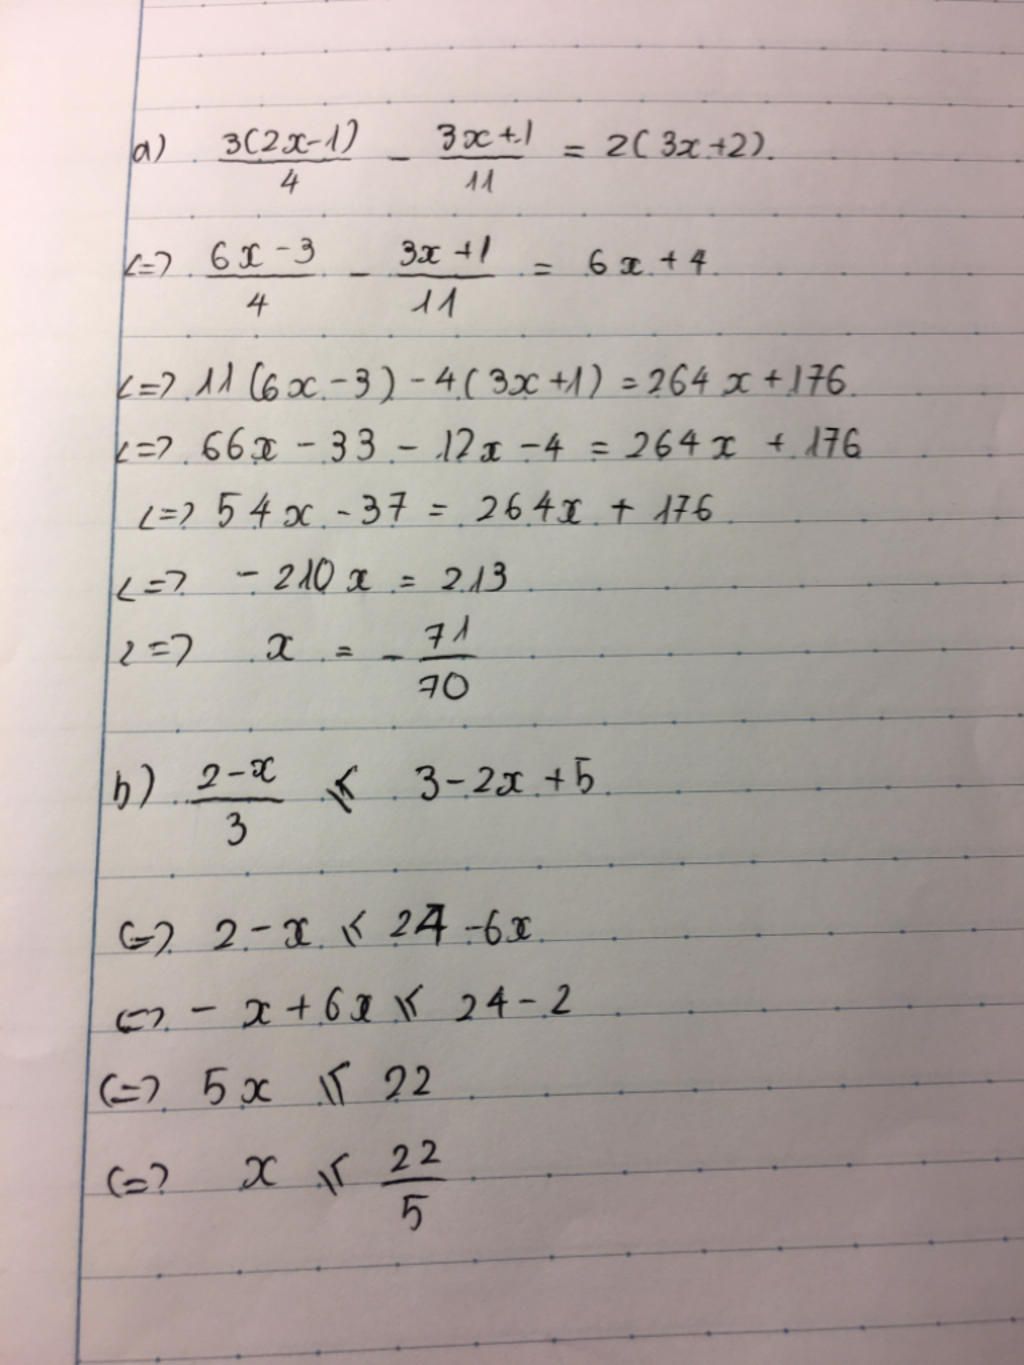 a) 3(2x-1)/4 - 3x+1/11 = 2(3x+2).
<=> 6x-3/4 - 3x+1/11 = 6x+4
<=> 11(6x-3)-4(3x+1) = 264x+176
<=> 66x-33-12x-4 = 264x+176
<=> 54x-37 = 264x+176
<=> -210x = 213
<=> x = -71/70
b) 2-x/3 ≤ 3-2x+5
<=> 2-x ≤ 24-6x
<=> -x+6x ≤ 24-2
<=> 5x ≤ 22
<=> x ≤ 22/5